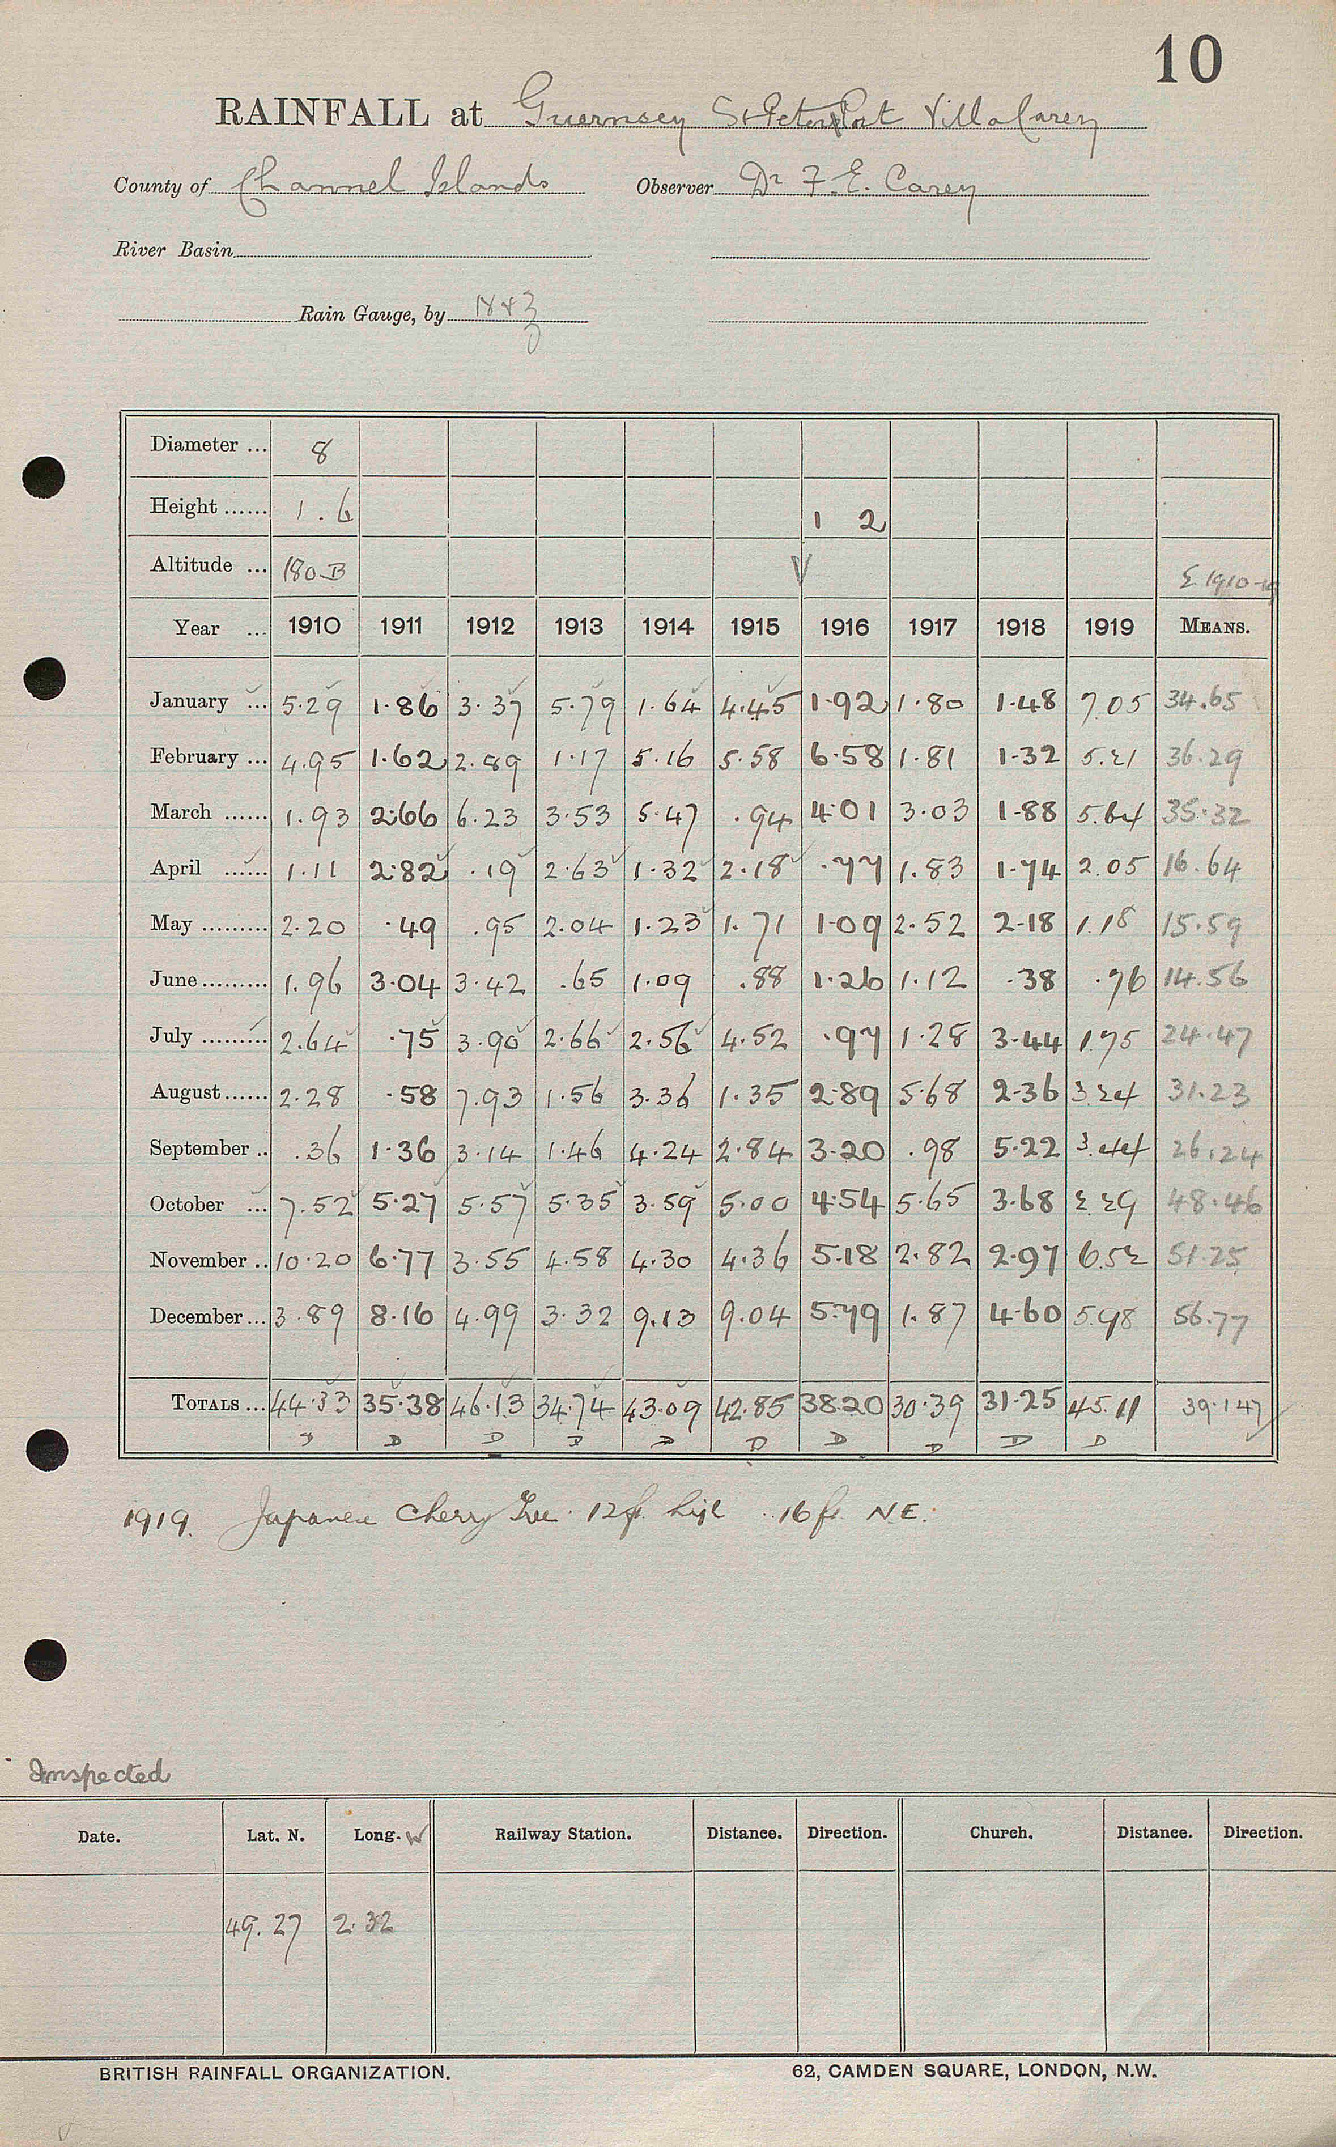 10
RAINFALL at Guernsey St Peter Port Villa Carey
County of Channel Islands Observer Dr F. E. Carey
River Basin
Rain Gauge, by
Diameter ... 8
Height ...... 1 . 6 1 2
Altitude ... 180 B Σ 1910-19
Year ... 1910 1911 1912 1913 1914 1915 1916 1917 1918 1919 MEANS.
January ... 5.29 1.86 3.37 5.79 1.64 4.45 1.92 1.80 1.48 7.05 34.65
February ... 4.95 1.62 2.89 1.17 5.16 5.58 6.58 1.81 1.32 5.21 36.29
March ...... 1.93 2.66 6.23 3.53 5.47 .94 4.01 3.03 1.88 5.64 35.32
April ...... 1.11 2.82 .19 2.63 1.32 2.18 .77 1.83 1.74 2.05 16.64
May ......... 2.20 .49 .95 2.04 1.23 1.71 1.09 2.52 2.18 1.18 15.59
June ......... 1.96 3.04 3.42 .65 1.09 .88 1.26 1.12 .38 .76 14.56
July ......... 2.64 .75 3.90 2.66 2.56 4.52 .97 1.28 3.44 1.75 24.47
August ...... 2.28 .58 7.93 1.56 3.36 1.35 2.89 5.68 2.36 3.24 31.23
September .. .36 1.36 3.14 1.46 4.24 2.84 3.20 .98 5.22 3.44 26.24
October ... 7.52 5.27 5.57 5.35 3.59 5.00 4.54 5.65 3.68 2.29 48.46
November .. 10.20 6.77 3.55 4.58 4.30 4.36 5.18 2.82 2.97 6.52 51.25
December ... 3.89 8.16 4.99 3.32 9.13 9.04 5.79 1.87 4.60 5.98 56.77
TOTALS ... 44.33 35.38 46.13 34.74 43.09 42.85 38.20 30.39 31.25 45.11 39.147
D D D D D D D D D D
1919. Japanese Cherry Tree 12 ft high 16 ft NE.
Inspected
Date. Lat. N. Long. W Railway Station. Distance. Direction. Church. Distance. Direction.
49.27 2.32
BRITISH RAINFALL ORGANIZATION. 62, CAMDEN SQUARE, LONDON, N.W.